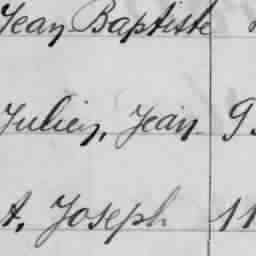 Jean Baptiste
Julien, Jean 9
A, Joseph 11